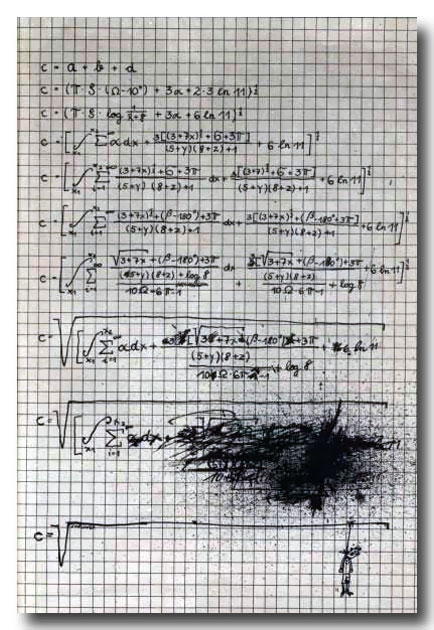 c = a + b + d
c = (T · S · (Ω-10°) + 3α + 2·3 ln 11)^½
c = (T · S · log 1/(z+8) + 3α + 6 ln 11)^½
c = [∫ x₁ x₂ ∑ ∞ α dx + 3[(3+7x)^½ + σ + 3π] / (5+y)(8+z)+1 + 6 ln 11]^½
c = [∫ x₁ x₂ ∑ i=1 ∞ (3+7x)^½ + σ + 3π / (5+y)(8+z)+1 dx + 3[(3+7)^½ + σ + 3π] / (5+y)(8+z)+1 + 6 ln 11]^½
c = [∫ x₁ x₂ ∑ i=1 ∞ (3+7x)^½ + (β-180°) + 3π / (5+y)(8+z)+1 dx + 3[(3+7x)^½ + (β-180° + 3π] / (5+y)(8+z)+1 + 6 ln 11]^½
c = [∫ x₁ x₂ ∑ i=1 ∞ √3+7x + (β-180°) + 3π / (5+y)(8+z) + log 8 / 10Ω + 6π-1 dx + 3[√3+7x + (β-180°) + 3π / (5+y)(8+z) / 10Ω + 6π-1 + log 8 + 6 ln 11]^½
c = √[∫ x₁ x₂ ∑ i=1 ∞ α dx + 3[√3+7x (β-180°) + 3π / (5+y)(8+z) / 10Ω·6π-1 + log 8 + 6 ln 11
c = √[∫ x₁ ∑ i=1 dx + 11
c = √